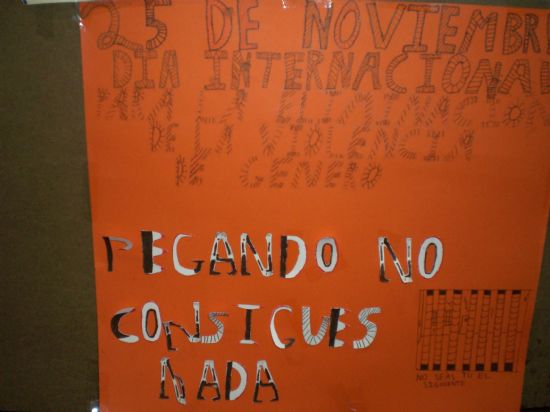 25 DE NOVIEMBRE
DIA INTERNACIONAL
PARA LA ELIMINACION
DE LA VIOLENCIA
DE GENERO
PEGANDO NO
CONSIGUES
NADA
NO SEAS TU EL
SIGUIENTE